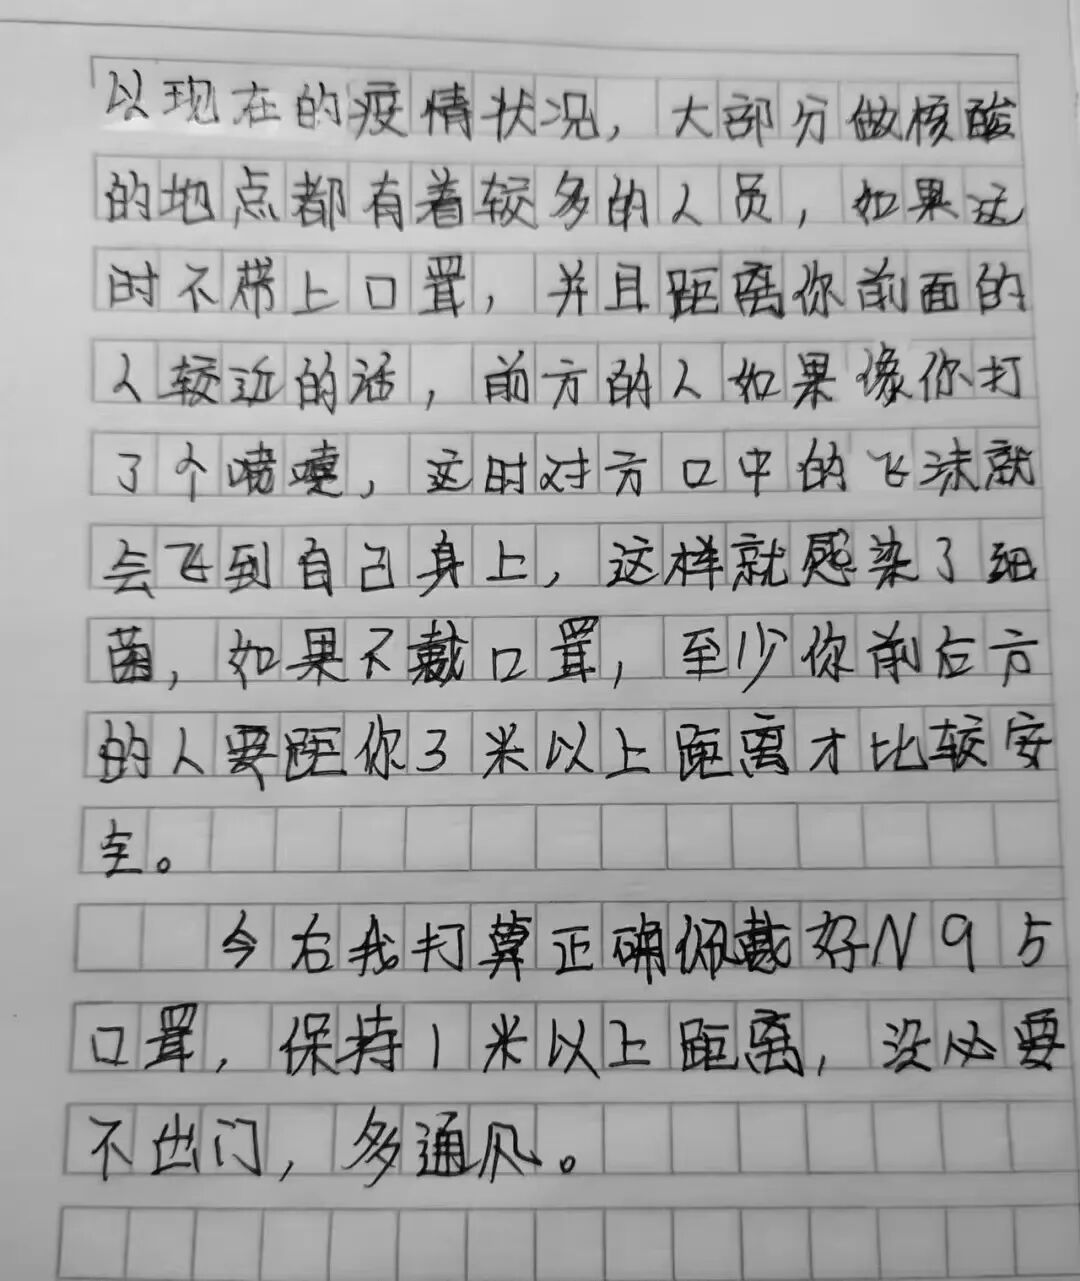 以现在的疫情状况，大部分做核酸
的地点都有着较多的人员，如果这
时不带上口罩，并且距离你前面的
人较近的话，前方的人如果像你打
了个喷嚏，这时对方口中的飞沫就
会飞到自己身上，这样就感染了细
菌，如果不戴口罩，至少你前后方
的人要距你3米以上距离才比较安
全。
今右我打算正确佩戴好N95
口罩，保持1米以上距离，没必要
不出门，多通风。